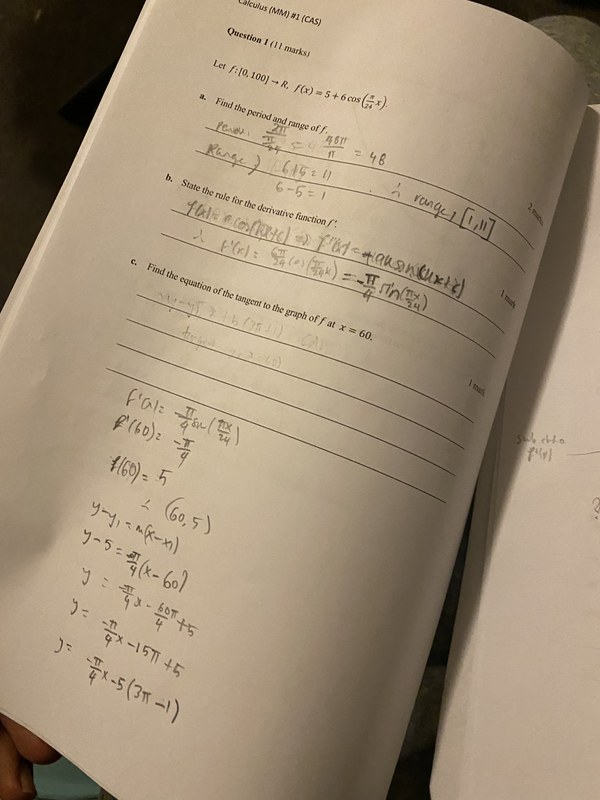 Calculus (MM) #1 (CAS)
Question 1 (11 marks)
Let f:[0, 100] → R, f(x) = 5 + 6 cos(π/24 x).
a. Find the period and range of f.
period: 2π / (π/24) = 48π/π = 48
Range } 6+5 = 11
6-5 = 1 ∴ range [1,11]
2 marks
b. State the rule for the derivative function f'.
∴ f'(x) = = -π/4 sin(πx/24)
1 mark
c. Find the equation of the tangent to the graph of f at x = 60.
1 mark
f'(x) = -π/4 sin(πx/24)
f'(60) = -π/4
f(60) = 5
∴ (60,5)
y-y₁ = m(x-x₁)
y-5 = -π/4(x-60)
y = -π/4 x - 60π/4 +5
y = -π/4 x -15π +5
y = -π/4 x -5(3π -1)
f'(x)